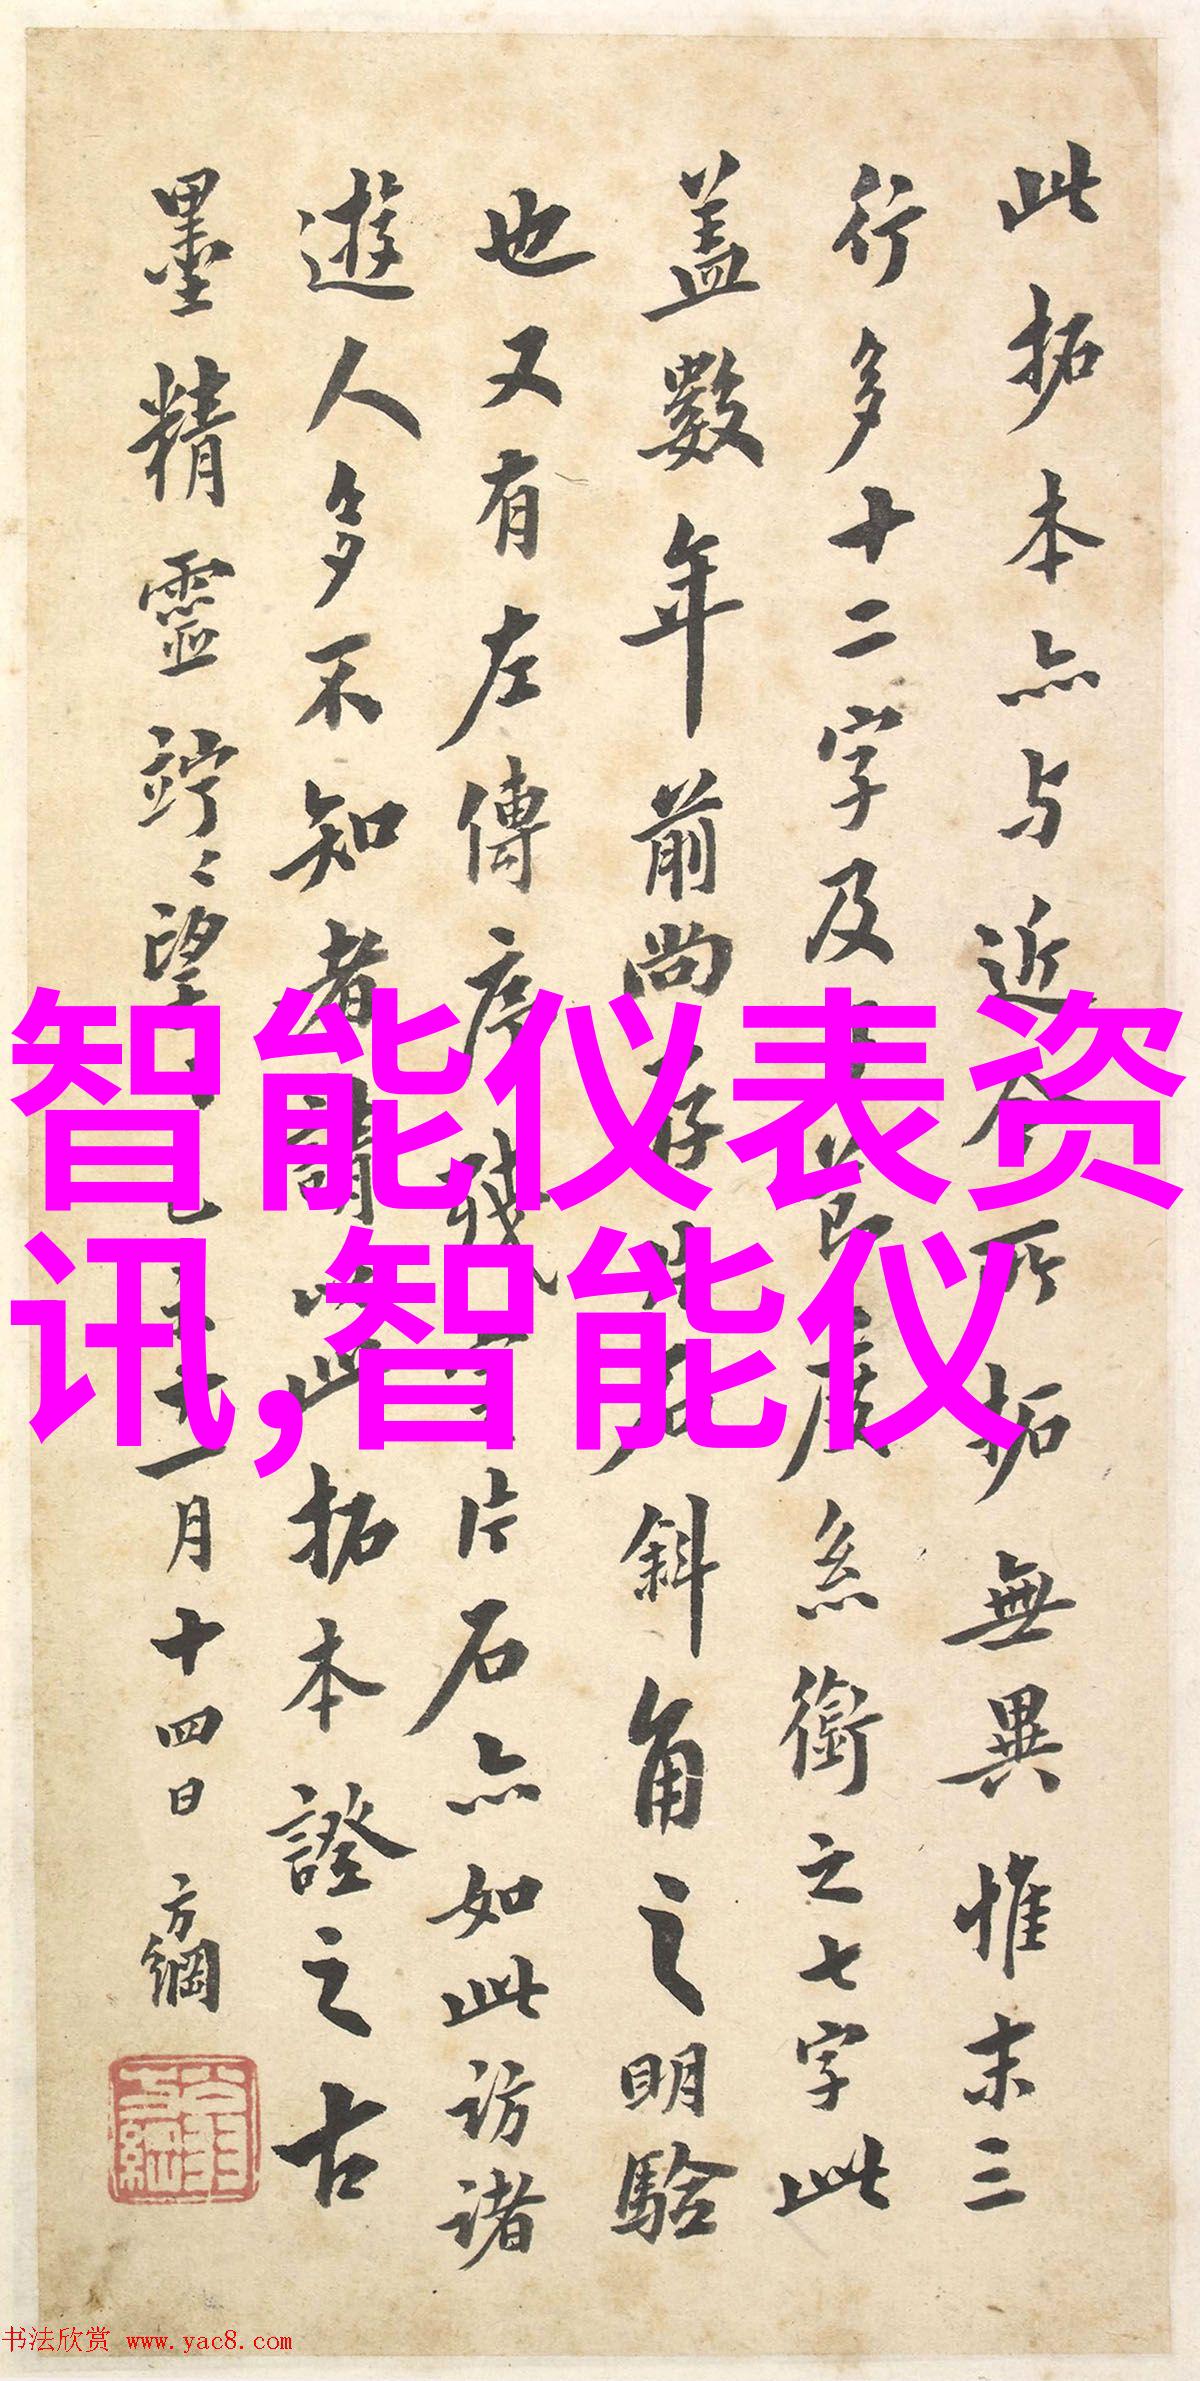 此拓本亦与近今所拓無異惟末三
行多十二字及節度系銜之七字此
蓋數年前尚存 斜角之明驗
也又有左傳序殘 片石亦如此訪諸
遊人多不知者請以此拓本證之古
墨精靈竚〻望 一月十四日 方綱
智能仪表资
讯,智能仪
书法欣赏 www.yac8.com